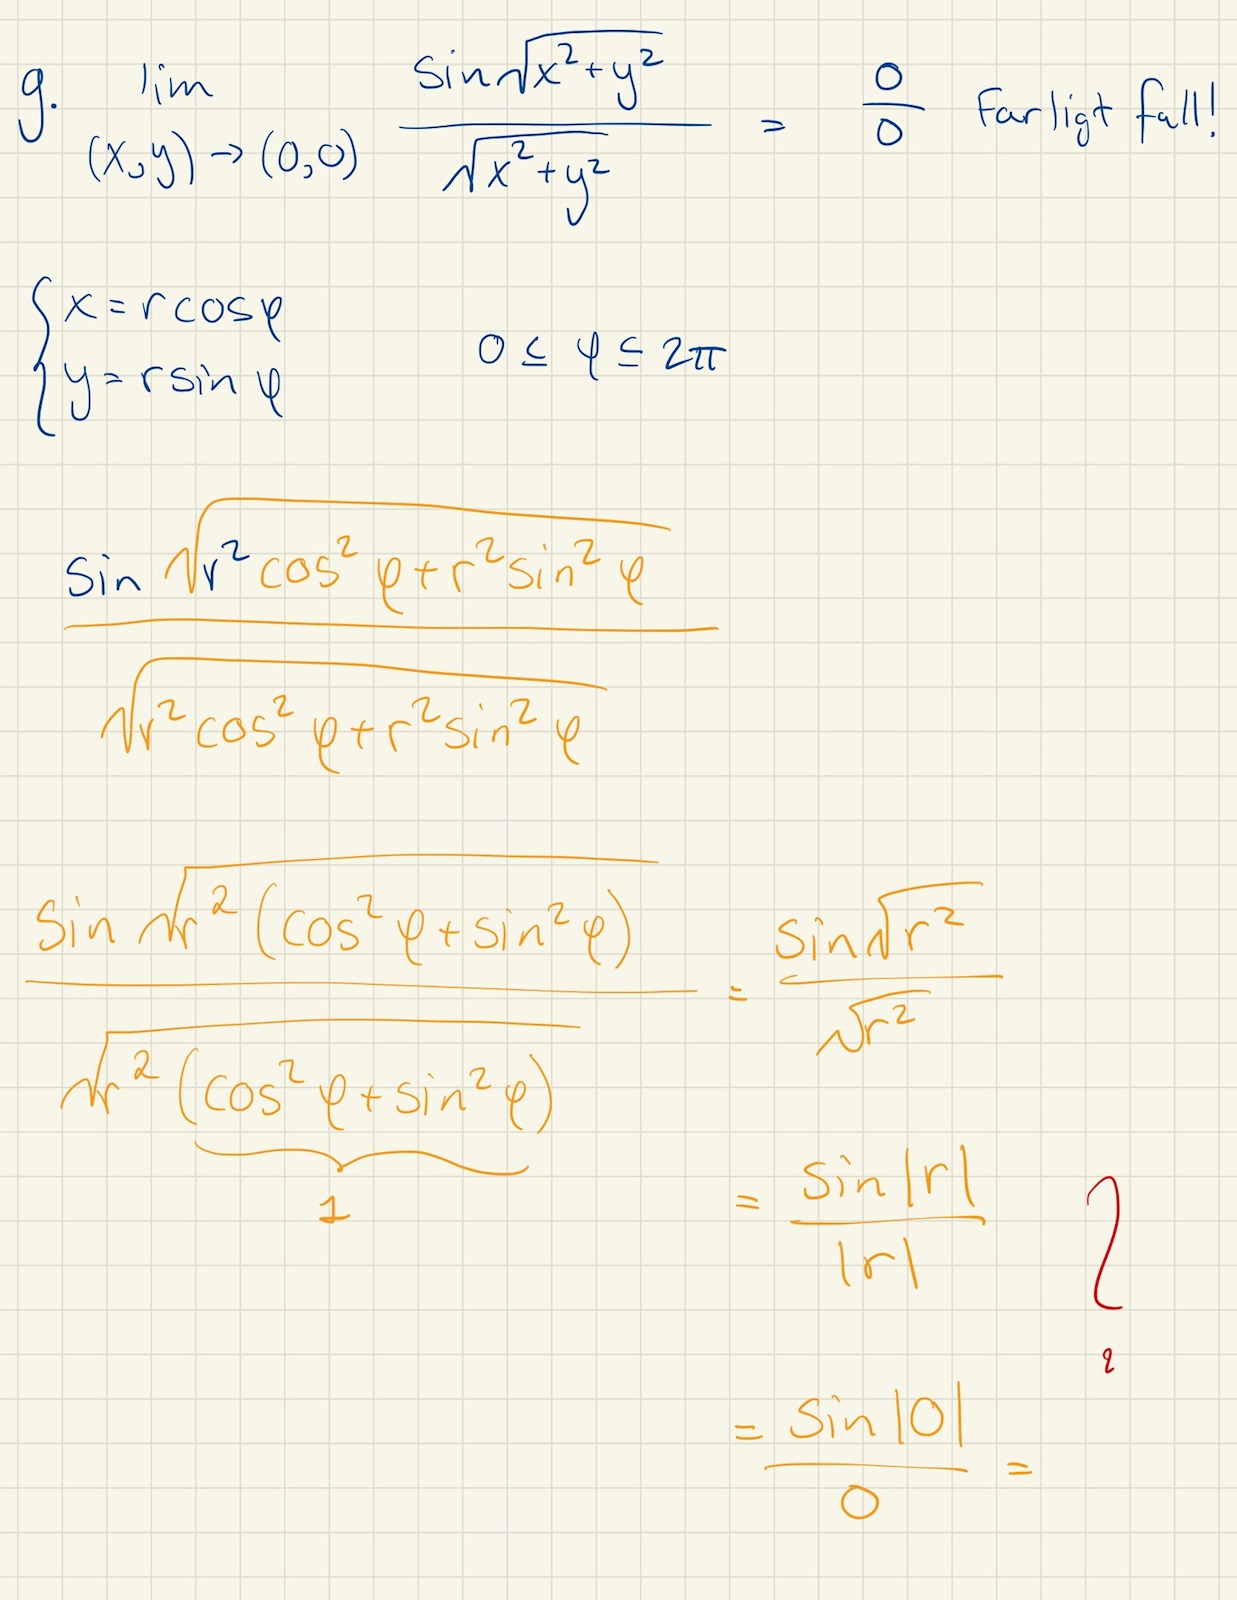 g. lim (x,y)→(0,0) sin√(x²+y²) / √(x²+y²) = 0/0 Farligt fall!
{ x = r cos φ
y = r sin φ 0 ≤ φ ≤ 2π
sin √(r² cos² φ + r² sin² φ)
√(r² cos² φ + r² sin² φ)
sin √(r² (cos² φ + sin² φ)) = sin √r²
√(r² (cos² φ + sin² φ)) √r²
1
= sin |r| / |r| ?
= sin |0| / 0 =